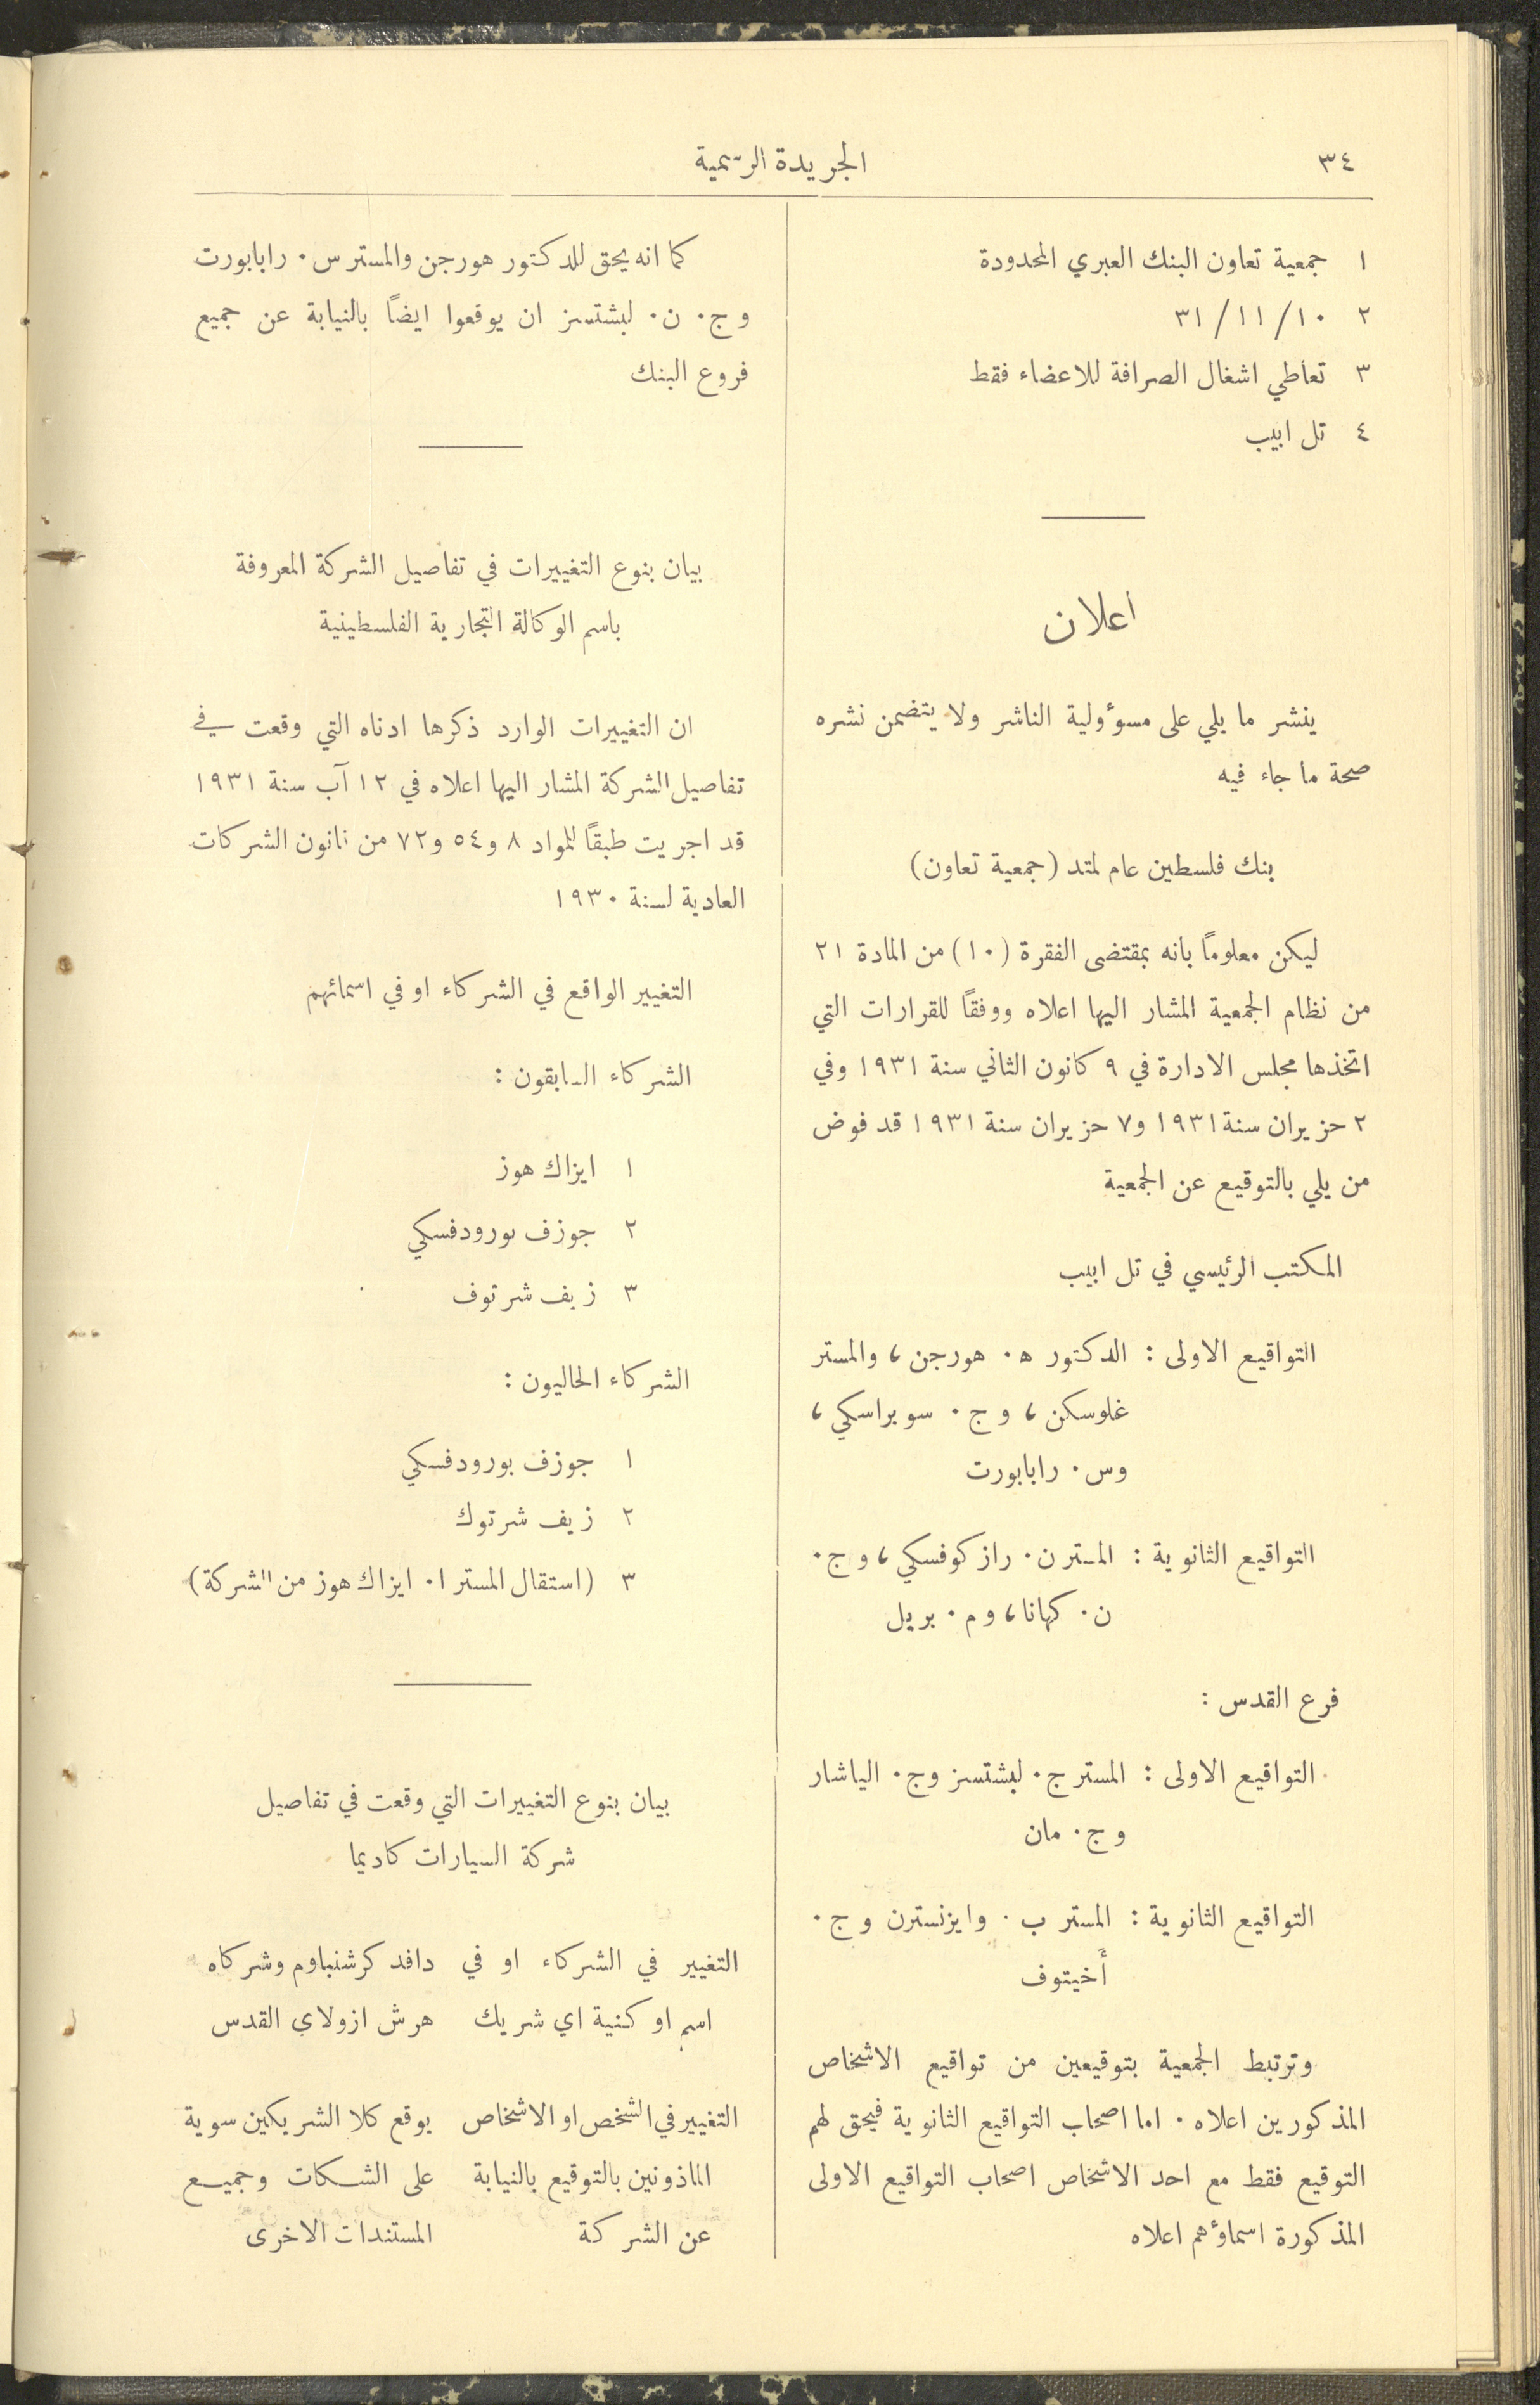 ٣٤
الجريدة الرسمية
١ جمعية تعاون البنك العبري المحدودة
٢ ١٠/١١/٣١
٣ تعاطي اشغال الصرافة للاعضاء فقط
٤ تل ابيب
اعلان
ينشر ما يلي على مسوؤلية الناشر ولا يتضمن نشره
صحة ما جاء فيه
بنك فلسطين عام لمتد (جمعية تعاون)
ليكن معلوماً بانه بمقتضى الفقرة (١٠) من المادة ٢١
من نظام الجمعية المشار اليها اعلاه ووفقاً للقرارات التي
اتخذها مجلس الادارة في ٩ كانون الثاني سنة ١٩٣١ وفي
٢ حزيران سنة ١٩٣١ و٧ حزيران سنة ١٩٣١ قد فوض
من يلي بالتوقيع عن الجمعية
المكتب الرئيسي في تل ابيب
التواقيع الاولى : الدكتور ه. هورجن، والمستر
غلوسكن، و ج. سوبراسكي،
وس. رابابورت
التواقيع الثانوية : المستر ن. رازكوفسكي، و ج.
ن. كهانا، و م. بريل
فرع القدس :
التواقيع الاولى : المستر ج. لبشتسز وج. الياشار
و ج. مان
التواقيع الثانوية : المستر ب. وايزنسترن و ج.
أخيتوف
وترتبط الجمعية بتوقيعين من تواقيع الاشخاص
المذكورين اعلاه. اما اصحاب التواقيع الثانوية فيحق لهم
التوقيع فقط مع احد الاشخاص اصحاب التواقيع الاولى
المذكورة اسماؤهم اعلاه
كما انه يحق للدكتور هورجن والمستر س. رابابورت
و ج. ن. لبشتسز ان يوقعوا ايضاً بالنيابة عن جميع
فروع البنك
بيان بنوع التغييرات في تفاصيل الشركة المعروفة
باسم الوكالة التجارية الفلسطينية
ان التغييرات الوارد ذكرها ادناه التي وقعت في
تفاصيل الشركة المشار اليها اعلاه في ١٢ آب سنة ١٩٣١
قد اجريت طبقاً للمواد ٨ و٥٤ و٧٢ من قانون الشركات
العادية لسنة ١٩٣٠
التغيير الواقع في الشركاء او في اسمائهم
الشركاء السابقون :
١ ايزاك هوز
٢ جوزف بورودفسكي
٣ زيف شرتوف
الشركاء الحاليون :
١ جوزف بورودفسكي
٢ زيف شرتوك
٣ (استقال المستر ا. ايزاك هوز من الشركة)
بيان بنوع التغييرات التي وقعت في تفاصيل
شركة السيارات كاديما
التغيير في الشركاء او في دافد كرشنباوم وشركاه
اسم او كنية اي شريك هرش ازولاي القدس
التغيير في الشخص او الاشخاص يوقع كلا الشريكين سوية
الماذونين بالتوقيع بالنيابة على الشكات وجميع
عن الشركة المستندات الاخرى